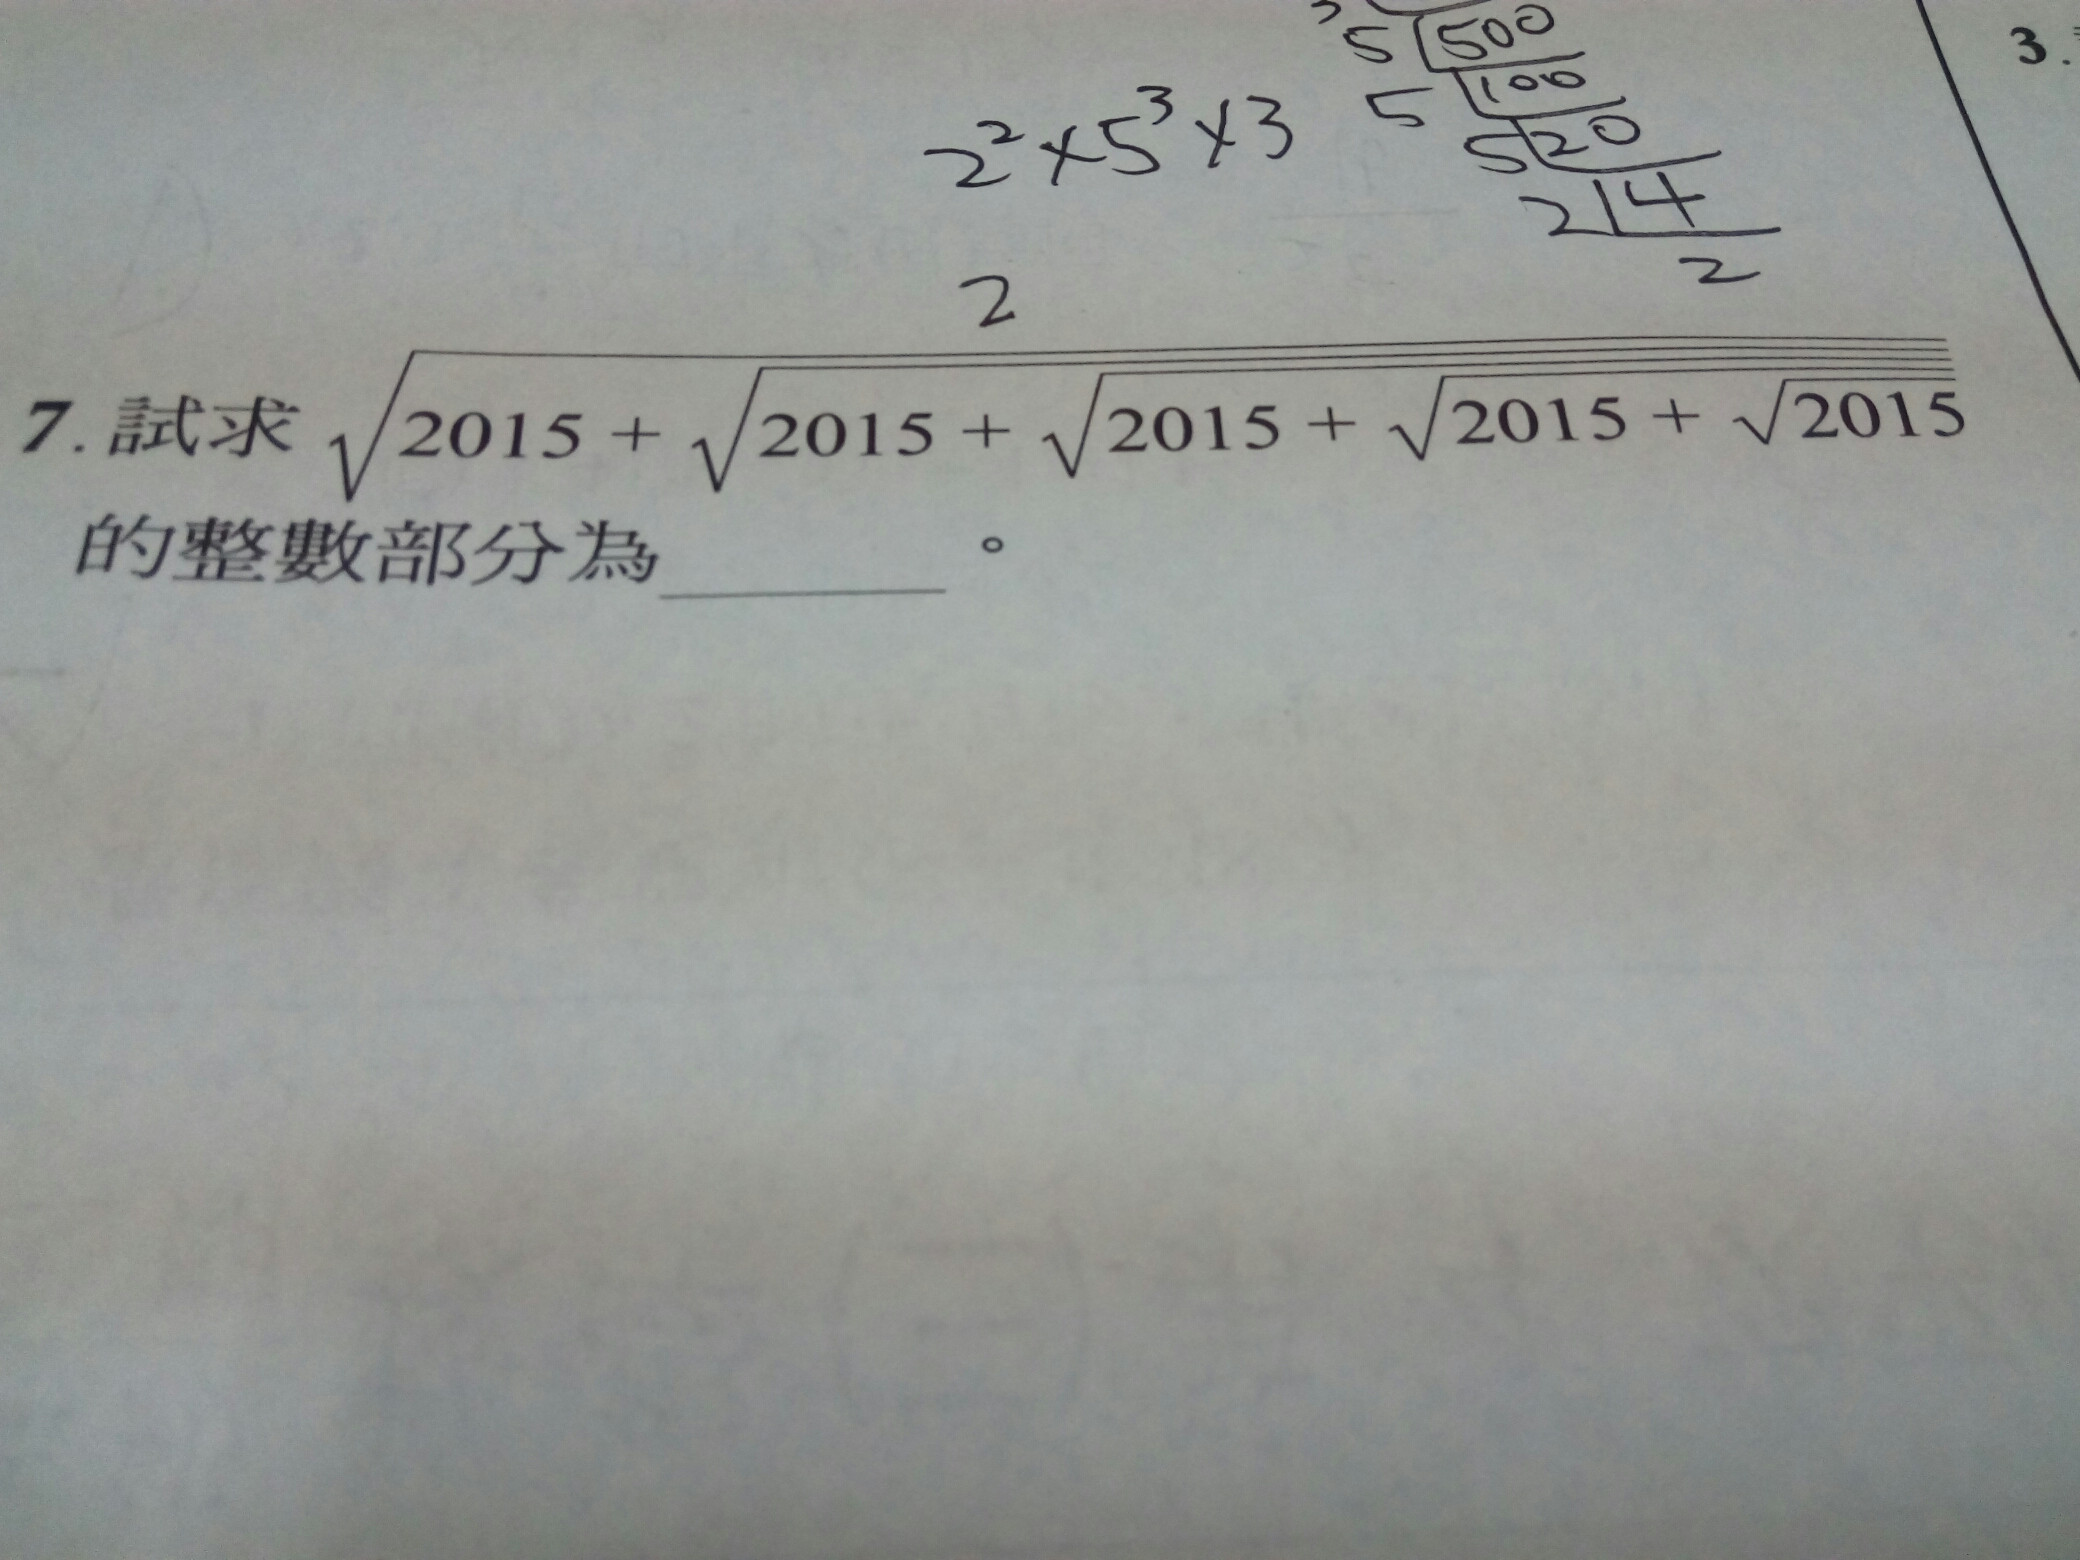 5 500
5 100
2² × 5³ × 3
5 20
2 4
2
2
3.
7. 試求 √2015 + √2015 + √2015 + √2015 + √2015
的整數部分為______。